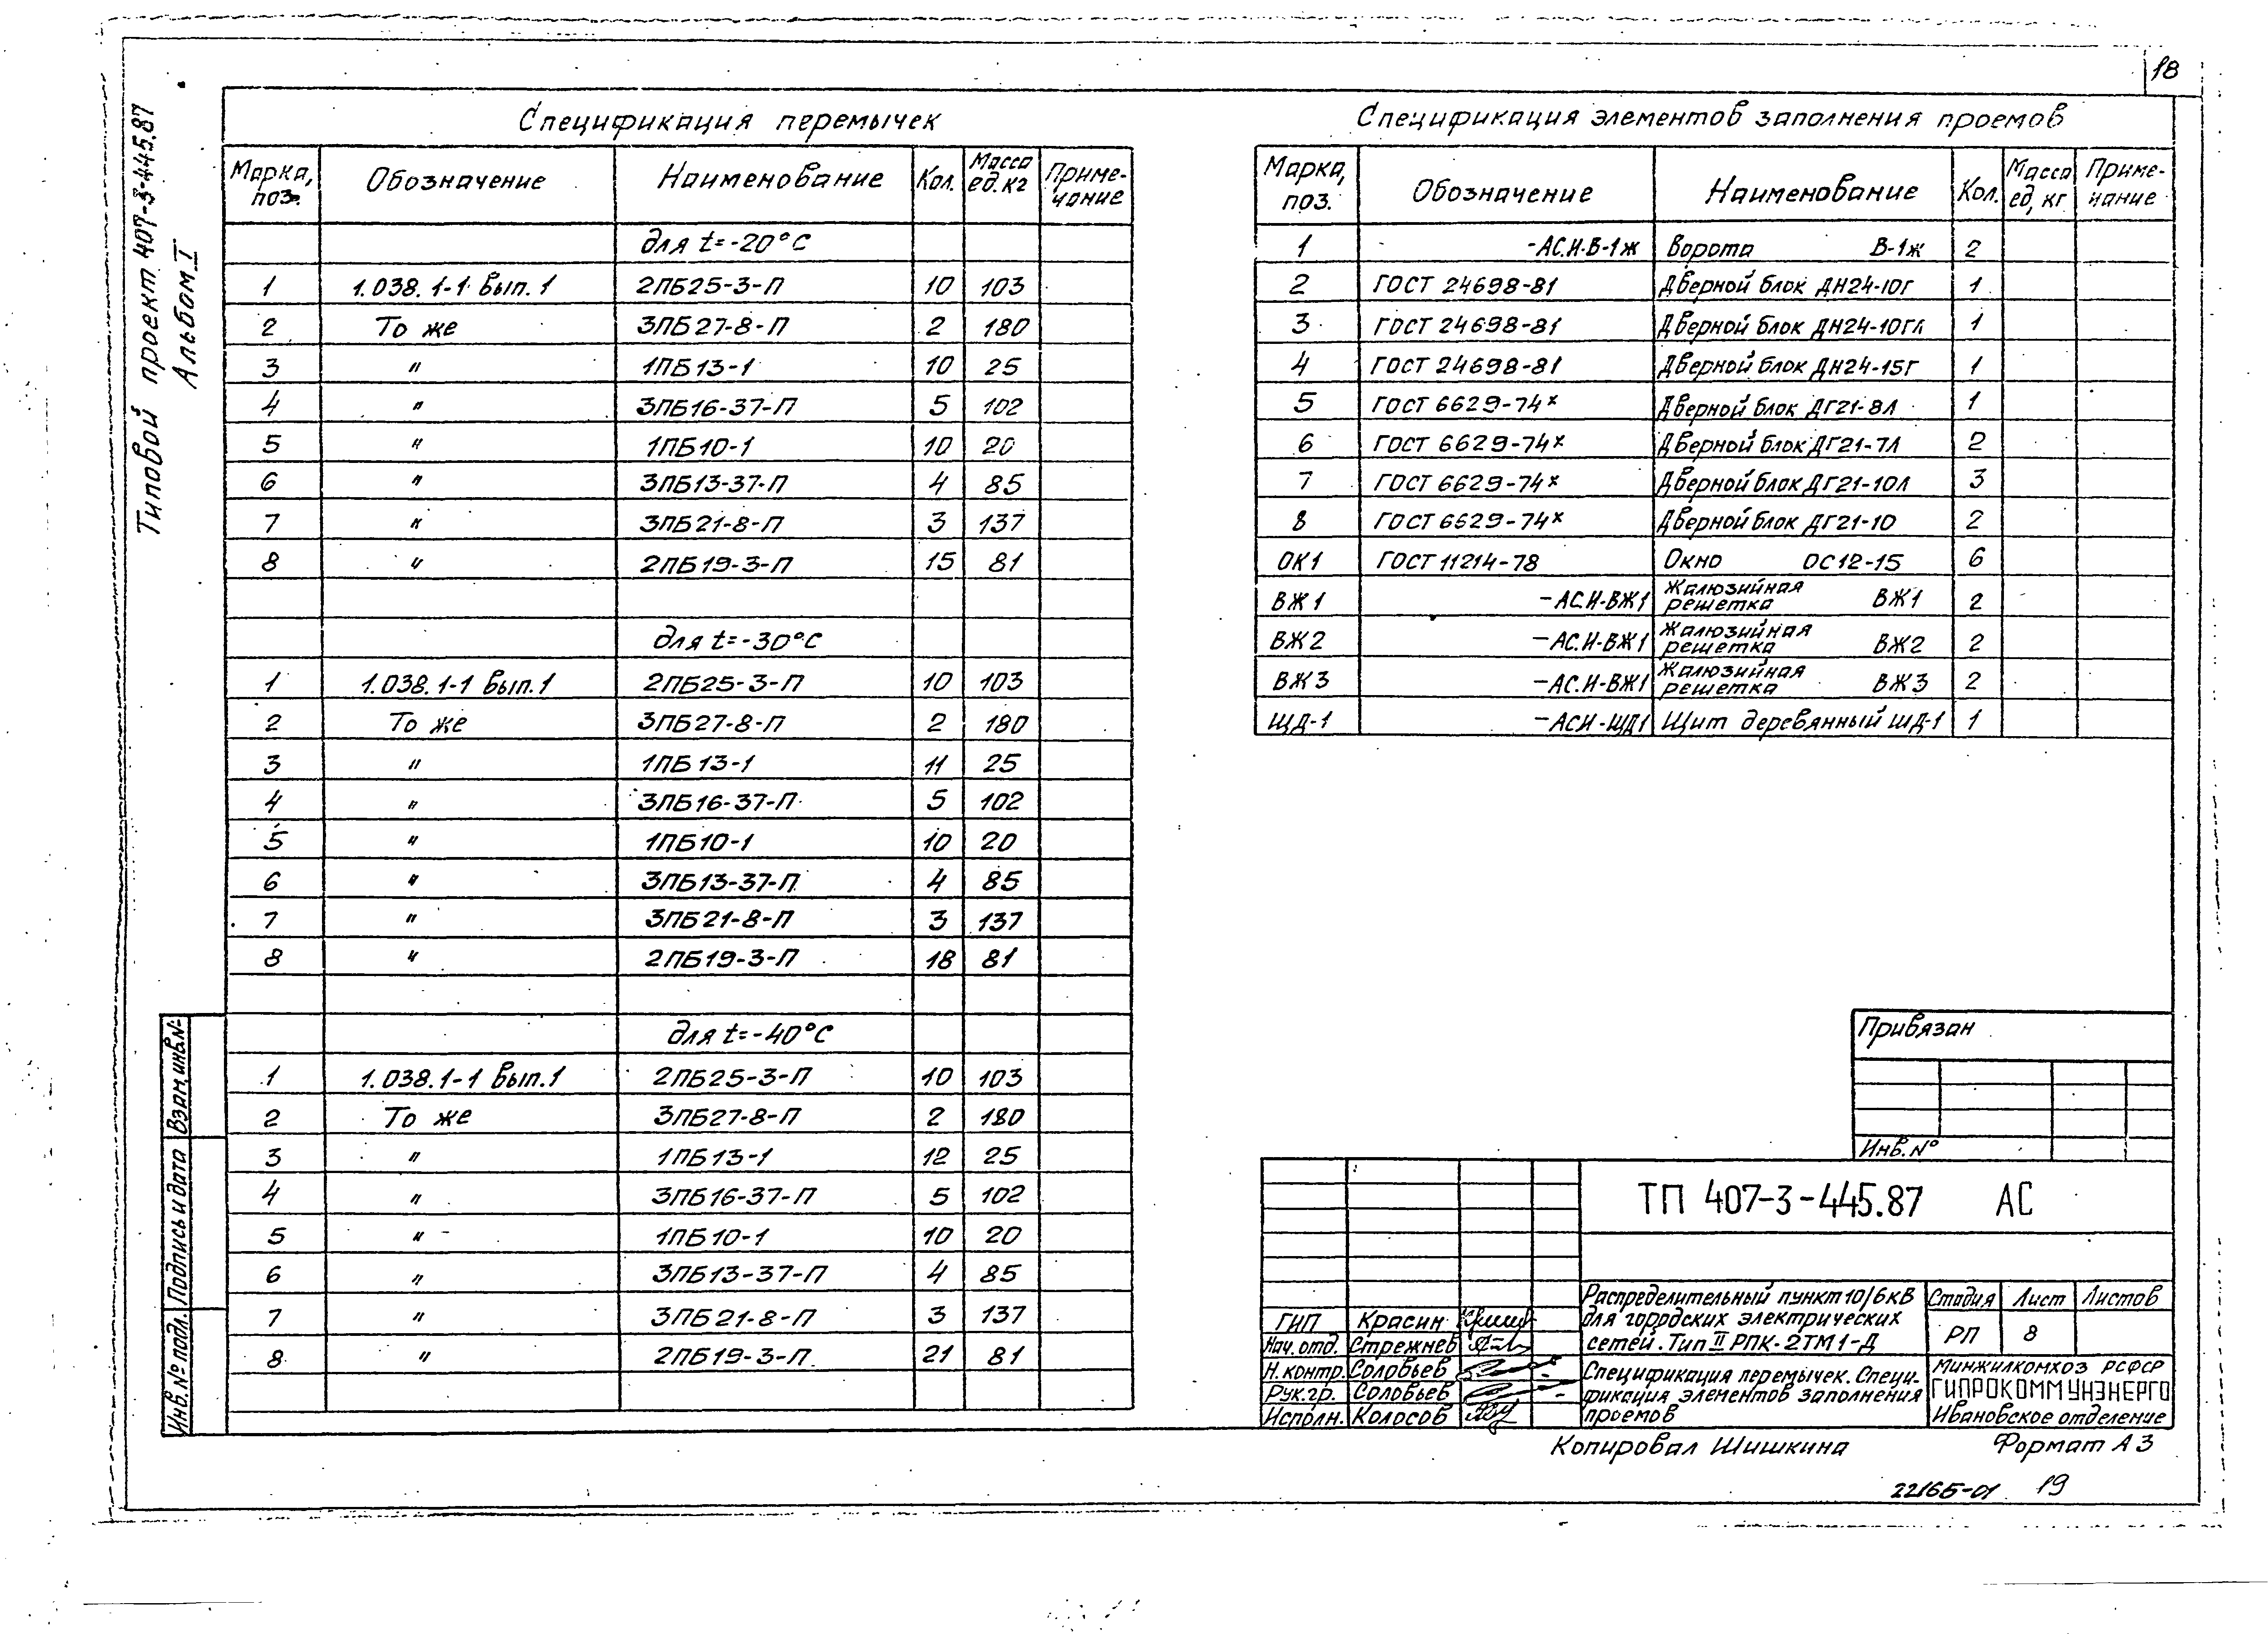 18
Типовой проект 407-3-445.87
Альбом I
Спецификация перемычек
Марка, поз. Обозначение Наименование Кол. Масса ед. кг Приме-чание
для t=-20°С
1 1.038.1-1 Вып.1 2ПБ25-3-П 10 103
2 То же 3ПБ27-8-П 2 180
3 " 1ПБ13-1 10 25
4 " 3ПБ16-37-П 5 102
5 " 1ПБ10-1 10 20
6 " 3ПБ13-37-П 4 85
7 " 3ПБ21-8-П 3 137
8 " 2ПБ19-3-П 15 81
для t=-30°С
1 1.038.1-1 Вып.1 2ПБ25-3-П 10 103
2 То же 3ПБ27-8-П 2 180
3 " 1ПБ13-1 11 25
4 " 3ПБ16-37-П 5 102
5 " 1ПБ10-1 10 20
6 " 3ПБ13-37-П 4 85
7 " 3ПБ21-8-П 3 137
8 " 2ПБ19-3-П 18 81
для t=-40°С
1 1.038.1-1 Вып.1 2ПБ25-3-П 10 103
2 То же 3ПБ27-8-П 2 180
3 " 1ПБ13-1 12 25
4 " 3ПБ16-37-П 5 102
5 " 1ПБ10-1 10 20
6 " 3ПБ13-37-П 4 85
7 " 3ПБ21-8-П 3 137
8 " 2ПБ19-3-П 21 81
Спецификация элементов заполнения проемов
Марка, поз. Обозначение Наименование Кол. Масса ед, кг Приме-чание
1 -АС.И-В-1ж Ворота В-1ж 2
2 ГОСТ 24698-81 Дверной блок ДН24-10Г 1
3 ГОСТ 24698-81 Дверной блок ДН24-10ГЛ 1
4 ГОСТ 24698-81 Дверной блок ДН24-15Г 1
5 ГОСТ 6629-74х Дверной блок ДГ21-8Л 1
6 ГОСТ 6629-74х Дверной блок ДГ21-7Л 2
7 ГОСТ 6629-74х Дверной блок ДГ21-10Л 3
8 ГОСТ 6629-74х Дверной блок ДГ21-10 2
ОК1 ГОСТ 11214-78 Окно ОС12-15 6
ВЖ1 -АС.И-ВЖ1 Жалюзийная решетка ВЖ1 2
ВЖ2 -АС.И-ВЖ1 Жалюзийная решетка ВЖ2 2
ВЖ3 -АС.И-ВЖ1 Жалюзийная решетка ВЖ3 2
ЩД-1 -АСИ-ЩД1 Щит деревянный ЩД-1 1
Привязан
Инв. №
ТП 407-3-445.87 АС
Распределительный пункт 10/6кВ
для городских электрических
сетей. Тип II РПК-2ТМ1-Д
Стадия Лист Листов
РП 8
ГИП Красин
Нач. отд. Стрежнев
Н. контр. Соловьев
Рук. гр. Соловьев
Исполн. Колосов
Спецификация перемычек. Специ-
фикация элементов заполнения
проемов
Минжилкомхоз РСФСР
ГИПРОКОММУНЭНЕРГО
Ивановское отделение
Взам. инв. №
Подпись и дата
Инв. № подл.
Копировал Шишкина Формат А3
22165-01 19